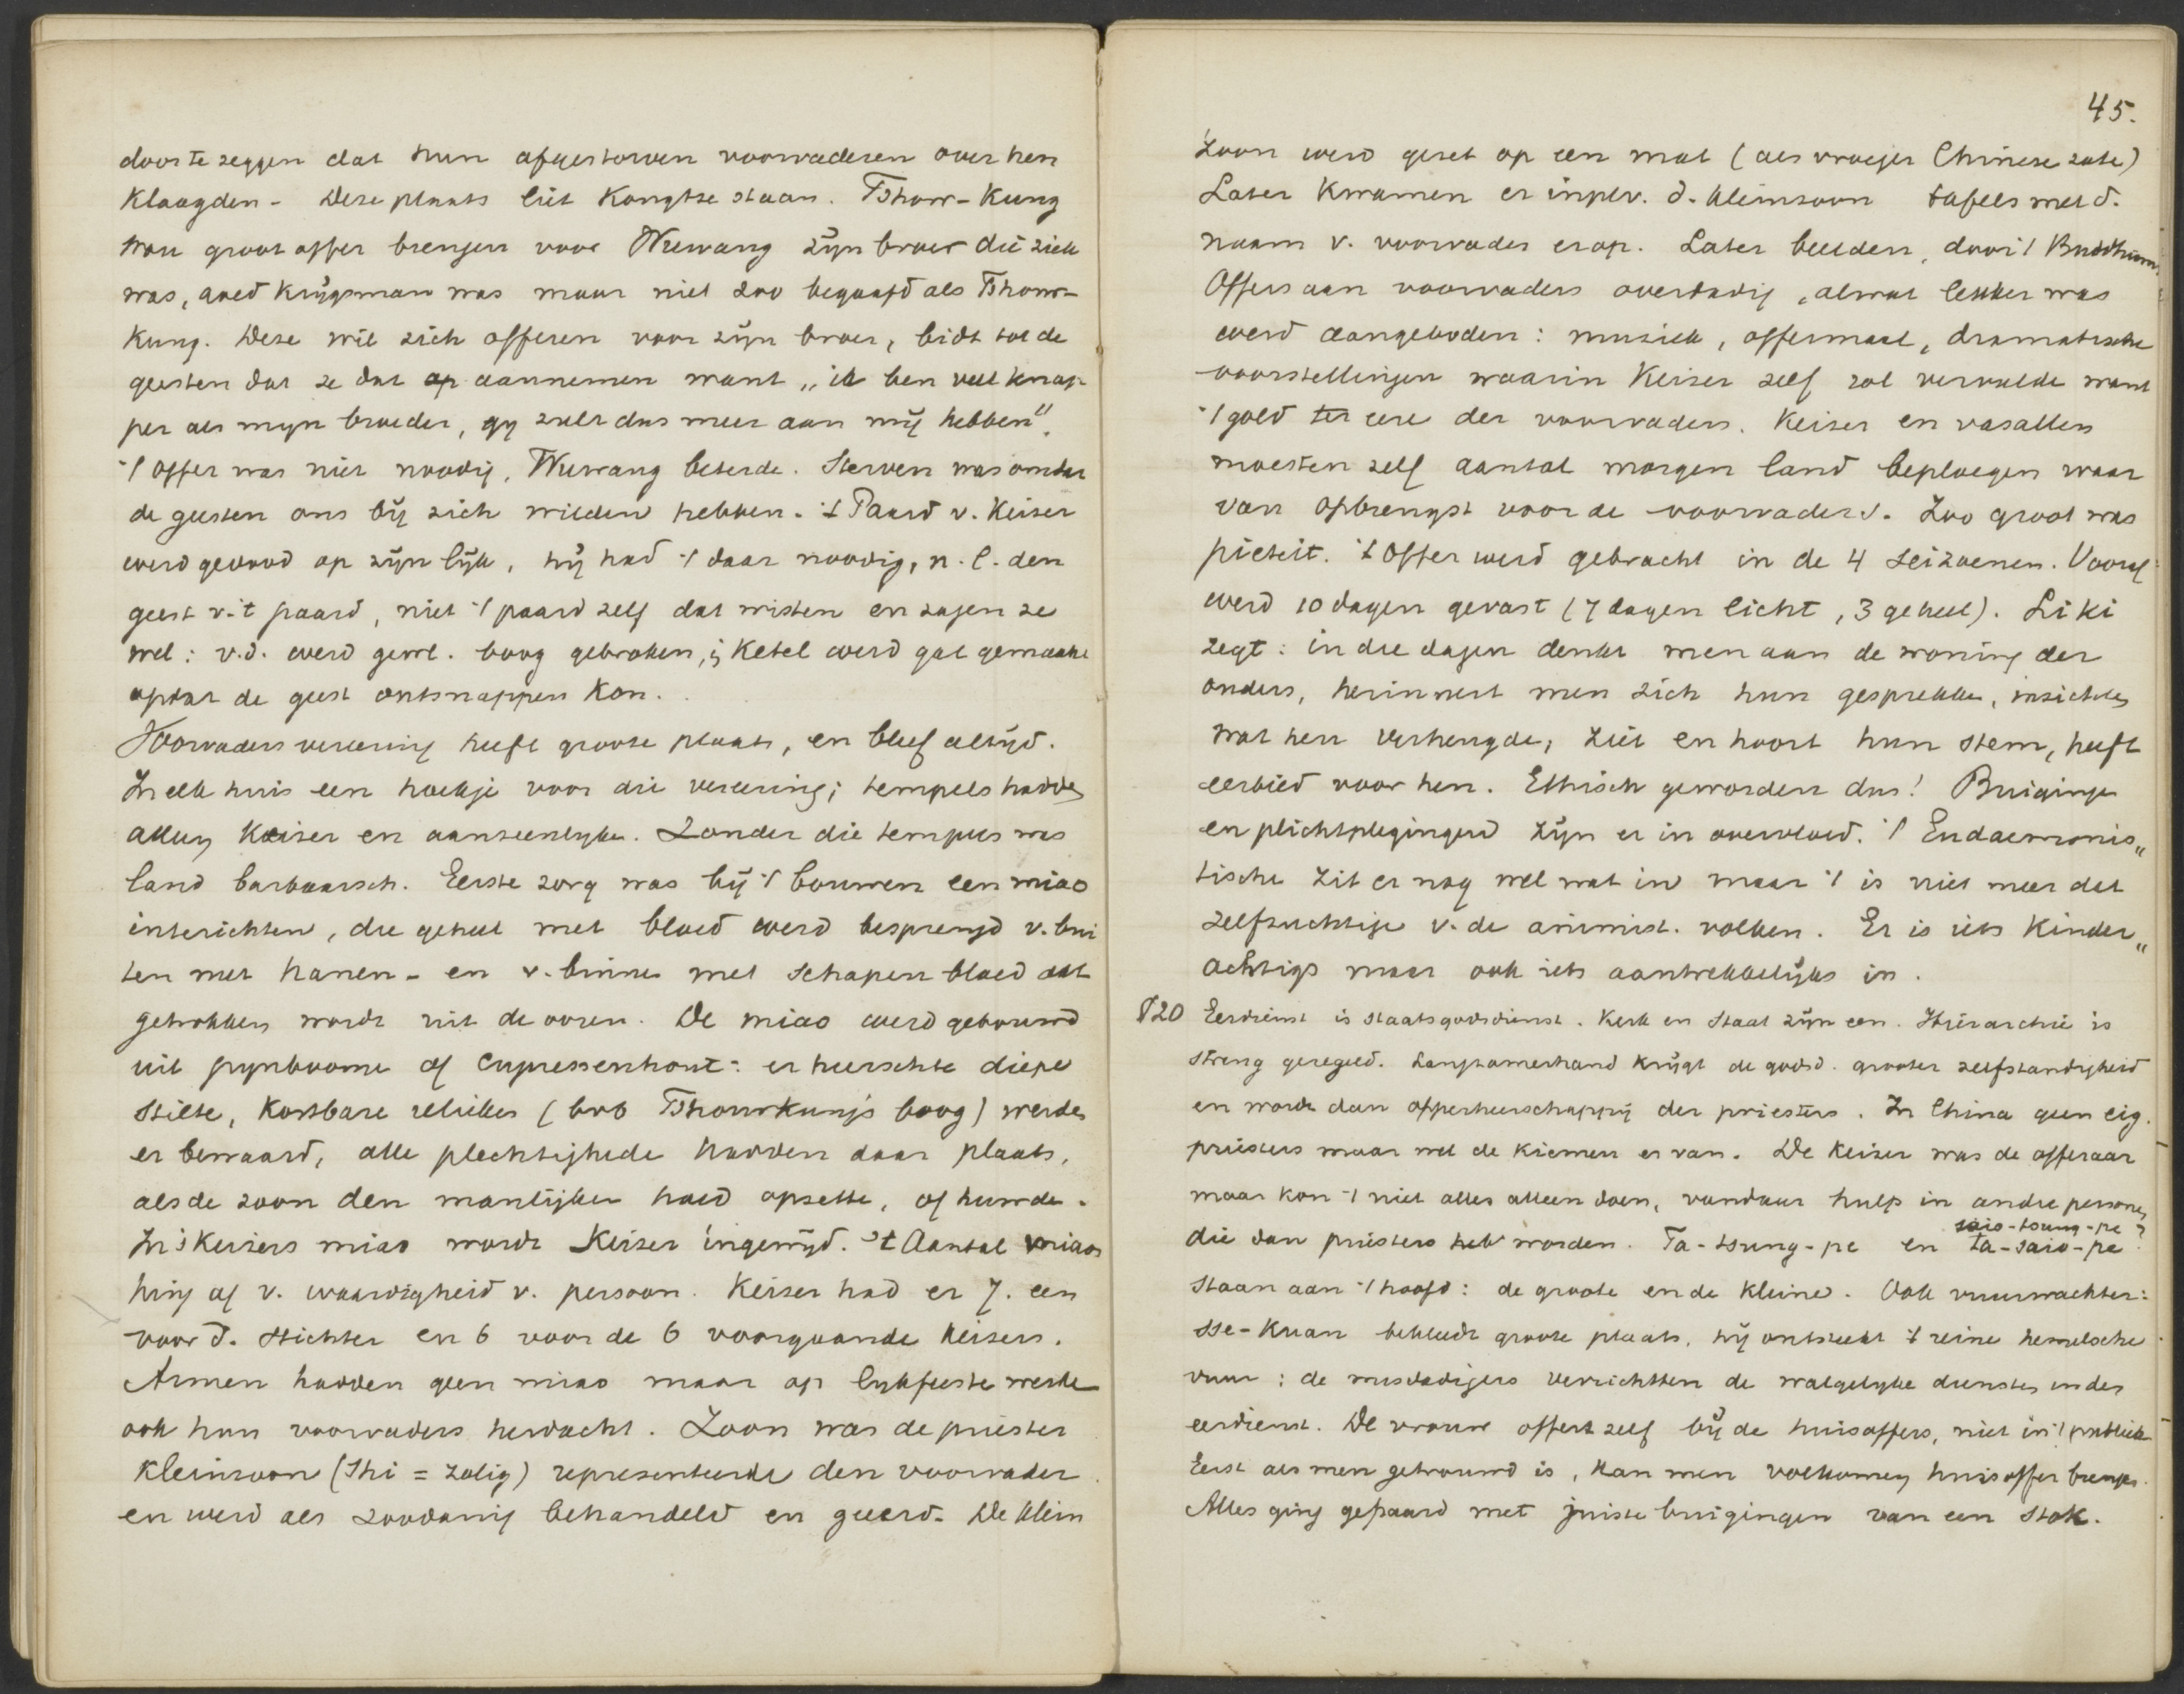 door te zeggen dat hun afgestorven voorvaderen over hen
klaagden - Deze plaats liet Kongtse staan. Tshow-Kung
wou groot offer brengen voor Wuwang zijn broer die ziek
was, goed krijgsman was maar niet zoo begaafd als Tshow-
Kung. Deze wil zich offeren voor zijn broer, bidt tot de
geesten dat ze dat op aannemen want „ik ben veel knap
per als myn broeder, gy zult dus meer aan mij hebben".
't Offer was niet noodig, Wuwang beterde. Sterven was omdat
de geesten ons bij zich wilden hebben. 't Paard v. Keizer
werd gedood op zijn lijk, hij had 't daar noodig, n.l. den
geest v. 't paard, niet 't paard zelf dat wisten en zagen ze
wel: v.d. werd gewl. boog gebroken, i/ ketel werd gat gemaakt
opdat de geest ontsnappen kon.
Voorvaders vereering heeft groote plaats, en bleef altijd.
In elk huis een hoekje voor die vereering; tempels hadden
alleen Keizer en aanzienlyken. Zonder die tempels was
land barbaarsch. Eerste zorg was bij 't bouwen een miao
interichten, die geheel met bloed werd besprengd v. bui
ten met hanen- en v. binnen met schapen bloed dat
getrokken wordt uit de ooren. De miao werd gebouwd
uit pynboome of cypressenhout: er heerschte diepe
stilte, kostbare relikken (bvb Tshowkung's boog) werden
er bewaard, alle plechtigheden hadden daar plaats,
als de zoon den manlijken hoed opzette, of huwde.
In 's Keizers miao wordt Keizer ingewijd. 't Aantal miaos
hing af v. waardigheid v. persoon. Keizer had er 7. een
voor d. stichter en 6 voor de 6 voorgaande keizers.
Armen hadden geen miao maar op lykfeesten werden
ook hun voorvaders herdacht. Zoon was de priester
Kleinzoon (Shi = zalig) representeerde den voorvader
en werd als zoodanig behandeld en geeerd. De klein
45.
zoon werd gezet op een mat (als vroeger Chinese zate)
Later kwamen er inplv. d. kleinzoon tafels met d.
naam v. voorvader erop. Later beelden, door 't Buddhism
Offers aan voorvaders overdadig, alwat lekker was
werd aangeboden: muziek, offermaal, dramatische
voorstellingen waarin Keizer zelf rol vervulde want
't gold ter eere der voorvaders. Keizer en vasallen
moesten zelf aantal morgen land beploegen waar
van opbrengst voor de voorvaders. Zoo groot was
pieteit. 't Offer werd gebracht in de 4 seizoenen. Vooraf
werd 10 dagen gevast (7 dagen licht, 3 geheel). Li ki
zegt: in die dagen denkt men aan de woning der
ouders, herinnert men zich hun gesprekken, inzichten
wat hen verheugde, ziet en hoort hun stem, heeft
eerbied voor hen. Ethisch geworden dus! Buigingen
en plichtplegingen zijn er in overvloed. 't Eudaemonis„
tische zit er nog wel wat in maar 't is niet meer dat
zelfzuchtige v. de animist. volken. Er is iets kinder„
achtigs maar ook iets aantrekkelijks in.
§20 Eerdienst is staatsgodsdienst. Kerk en Staat zijn een. Hierarchie is
streng geregeld. Langzamerhand krijgt de godsd. grooter zelfstandigheid
en wordt dan opperheerschappij der priesters. In China geen eig.
priesters maar wel de kiemen er van. De keizer was de offeraar
maar kon 't niet alles alleen doen, vandaar hulp in andre personen
siao-tsung-pe ?
die dan priesters heb worden. Ta-tsung-pe en ta-saio-pe
staan aan 't hoofd: de groote en de kleine. Ook vuurwachter:
sse-Kuan bekleedt groote plaats, hij ontsteekt 't reine hemelsche
vuur: de misdadigers verrichtten de walgelyke diensten in den
eerdienst. De vrouw offert zelf bij de huisoffers, niet in 't publiek
Eerst als men getrouwd is, kan men volkomen huisoffer brengen.
Alles ging gepaard met juiste buigingen van een stok.